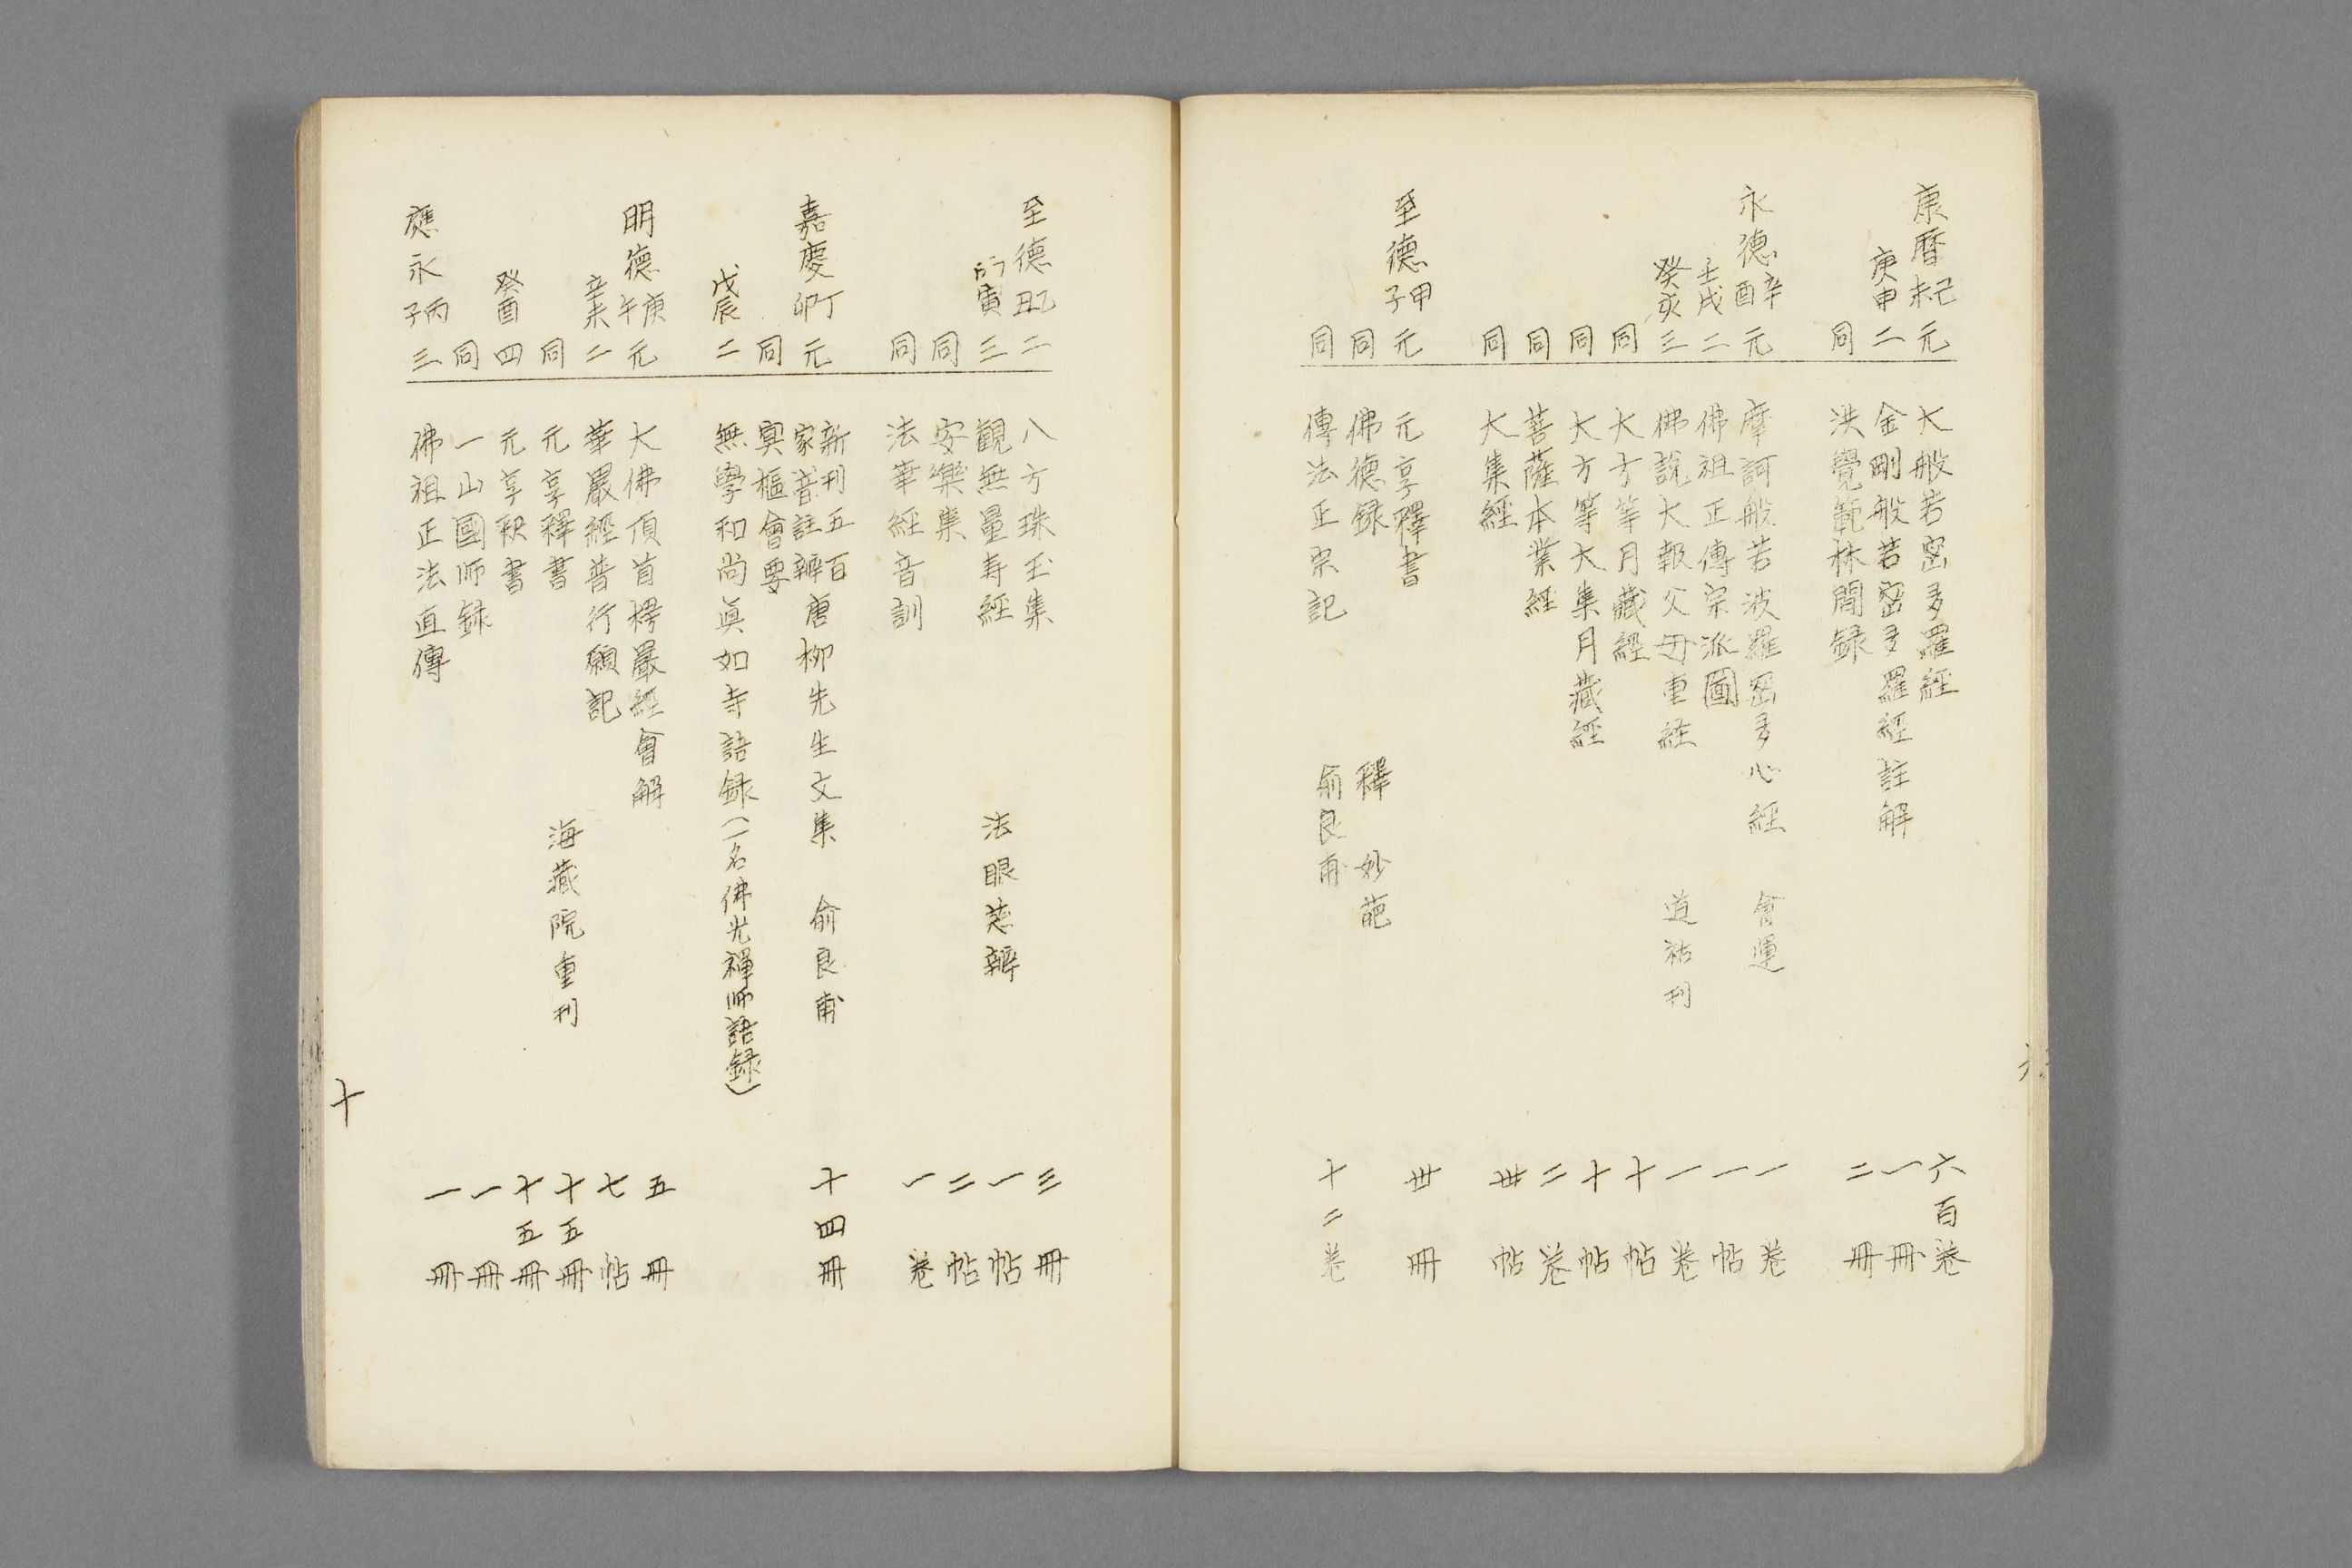 康暦己未元 大般若密多羅経 六百卷
庚申二 金剛般若密多羅経註解 一冊
同 洪覺範林間録 二冊
永德辛酉元 摩訶般若波羅密多心経 會運 一卷
壬戌二 佛祖正傳宗派圖 一帖
癸亥三 佛說大報父母重経 道祐刊 一卷
同 大方等月藏經 十帖
同 大方等大集月藏經 十帖
同 菩薩本業經 二卷
同 大集經 卅帖
至德甲子元 元亨釋書 卅冊
同 佛德録 釋 妙葩
同 傳法正宗記 俞良甫 十二卷
至德乙丑二 八方珠玉集 三冊
丙寅三 觀無量寿經 法眼慈辨 一帖
同 安樂集 二帖
同 法華經音訓 一卷
嘉慶丁卯元 新刊五百家音註辯唐柳先生文集 俞良甫 十四冊
同 樞會要
戊辰二 無學和尚眞如寺語録(一名佛光禪師語録)
明德庚午元 大佛頂首楞嚴經會解 五冊
辛未二 華嚴經普行願記 七帖
同 元亨釋書 海藏院重刊 十五冊
癸酉四 元亨釈書 十五冊
同 一山國师録 一冊
應永丙子三 佛祖正法直傳 一冊
十